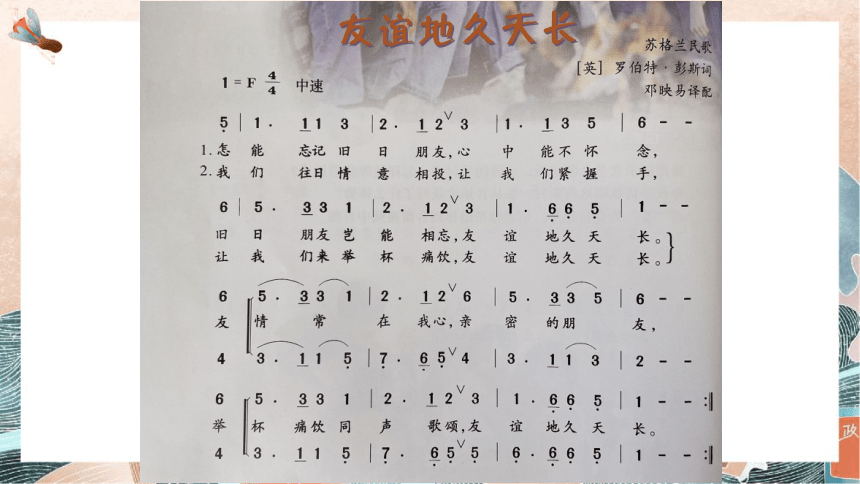 友谊地久天长
苏格兰民歌
[英] 罗伯特·彭斯词
邓映易译配
1=F 4/4 中速
5̣ | 1 . 1 1 3 | 2 . 1 2 ∨ 3 | 1 . 1 3 5 | 6 - -
1.怎 能 忘记 旧 日 朋友,心 中 能不 怀 念,
2.我 们 往日 情 意 相投,让 我 们紧 握 手,
6 | 5 . 3 3 1 | 2 . 1 2 ∨ 3 | 1 . 6̣ 6̣ 5̣ | 1 - -
旧 日 朋友 岂 能 相忘,友 谊 地久 天 长。
让 我 们来 举 杯 痛饮,友 谊 地久 天 长。
6 5 . 3 3 1 | 2 . 1 2 ∨ 6 | 5 . 3 3 5 | 6 - -
友 情 常 在 我心,亲 密 的朋 友,
4 3 . 1 1 5̣ | 7̣ . 6̣ 5̣ ∨ 4 | 3 . 1 1 3 | 2 - -
6 5 . 3 3 1 | 2 . 1 2 ∨ 3 | 1 . 6̣ 6̣ 5̣ | 1 - - :‖
举 杯 痛饮 同 声 歌颂,友 谊 地久 天 长。
4 3 . 1 1 5̣ | 7̣ . 6̣ 5̣ ∨ 5̣ | 6̣ . 6̣ 6̣ 5̣ | 1 - - :‖
政